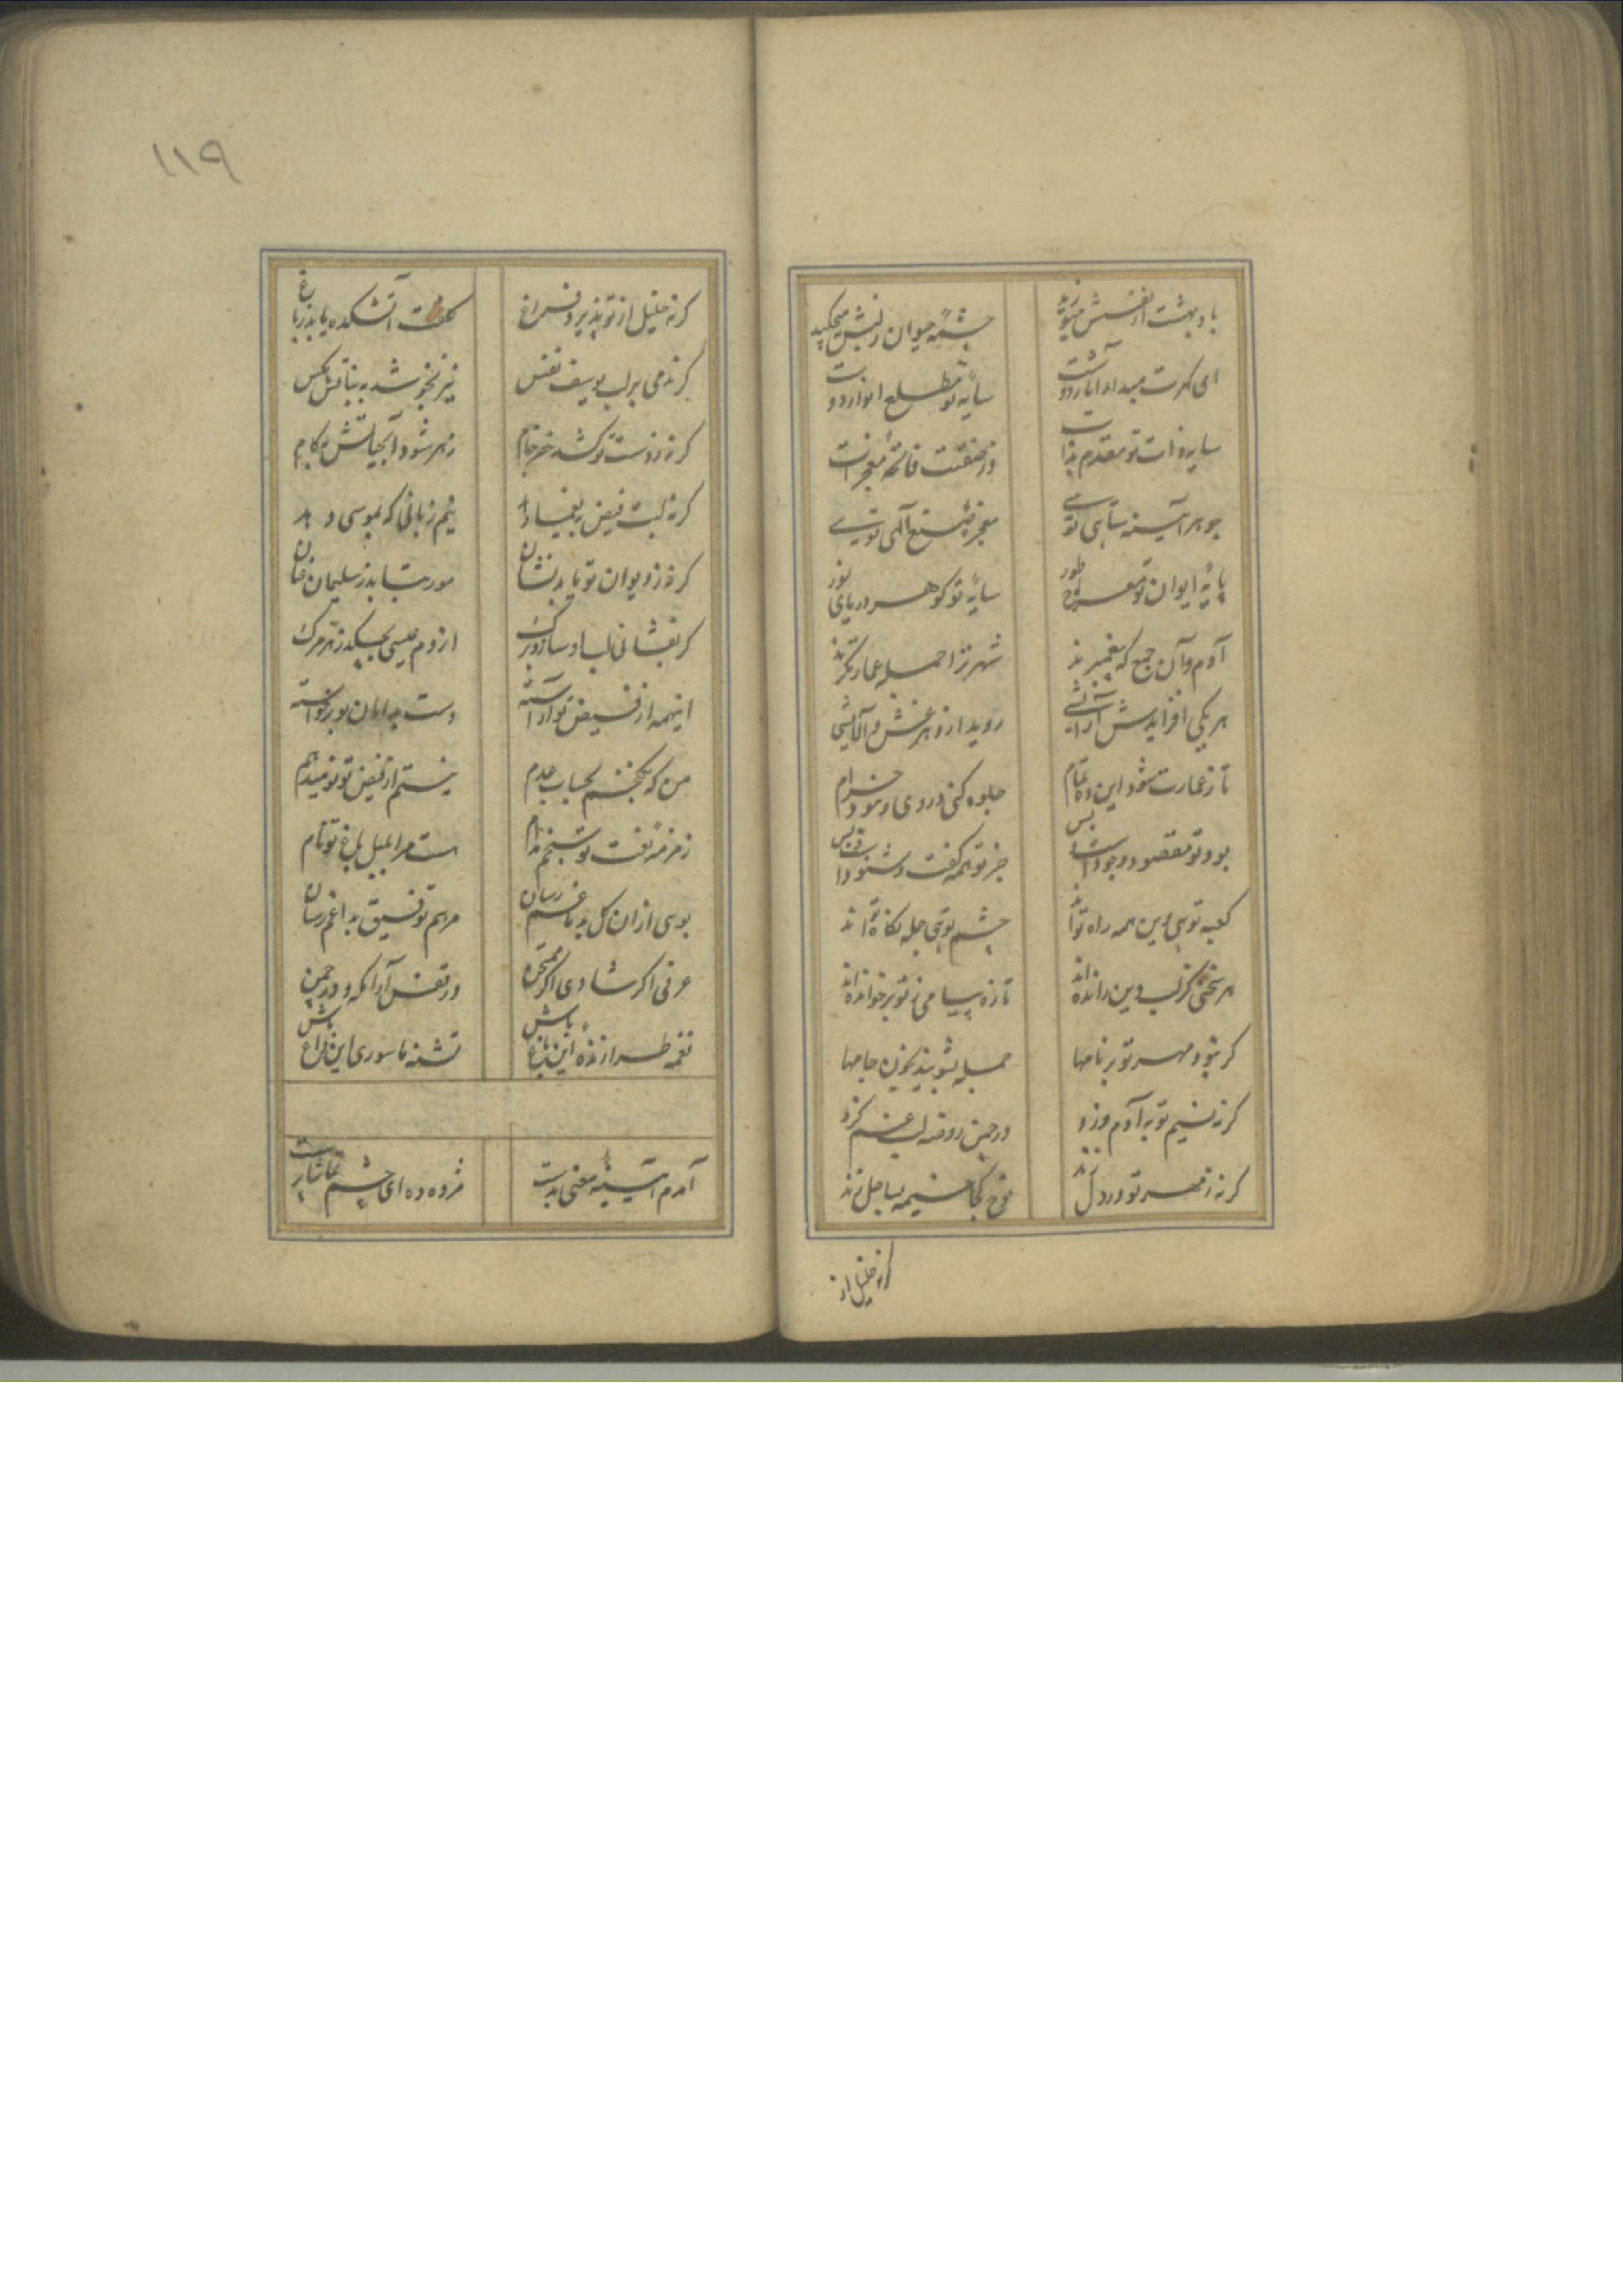 باد بهشت از نفسش میوزید
چشمهٔ حیوان ز لبش میچکید
ای گهرت مبداء آثار دوست
سایهٔ تو مطلع انوار دوست
سایهٔ ذات تو مقدم بذات
در صفتت فاتحهٔ معجزات
جوهر آیینه شاهی تویی
معجز صنع الهی تویی
پایهٔ ایوان تو معراج طور
سایهٔ تو گوهر دریای نور
آدم و آن جمع که پیغمبرند
شهر ترا جمله عمارتگرند
هر یکی افزایدش آرایشی
روید ازو هر غش و آلایشی
تا ز عمارت شود این ده تمام
جلوه کنی در وی و موزون خرام
بود تو مقصود وجودست بس
جز تو همه گفت و شنودست و بس
کعبه تویی وین همه راه تو اند
چشم تویی جمله نگاه تو اند
هر سخنی کز لب دین رانده اند
تازه پیامی ز تو بر خوانده اند
گر نبود مهر تو بر نامها
جمله بشویند بخون جامها
گر نه نسیم تو به آدم وزد
در چمن روضه لب غم گزد
گر نه ز مهر تو در دل زند
نوح کجا خیمه بساحل زند
گر نه خلیل از
۱۱۹
گر نه خلیل از تو پذیرد فراغ
کلفت آتشکده یابد ز باغ
گر ندمی بر لب یوسف نفس
نیز نخوشد به بناتش مکس
گر نه ز دست تو کشد خضر جام
زهر شود آب حیاتش بکام
گر نه لبت فیض به یغما دهد
نیم زبانی که بموسی دهد
گر نه ز دیوان تو یابد نشان
مور بتابد ز سلیمان عنان
گر نفشانی لب او ساز و برگ
از دم عیسی بچکد زهر مرگ
اینهمه از فیض تو آراسته
دست بدامان تو برخواسته
من که نگنجم بحساب عدم
نیستم از فیض تو نومید هم
زمزمهٔ نعت تو سنجم مدام
هست مرا بلبل باغ تو نام
بوی از آن گل بدماغم رسان
مرهم توفیق بداغم رسان
عرفی اگر شادی اگر ممتحن
در قفس آرامگه و در چمن
نغمه طرازنده این باغ باش
تشنه ناسوری این داغ باش
آمدم آیینهٔ معنی بدست
مژده ده ای چشم تماشاپرست